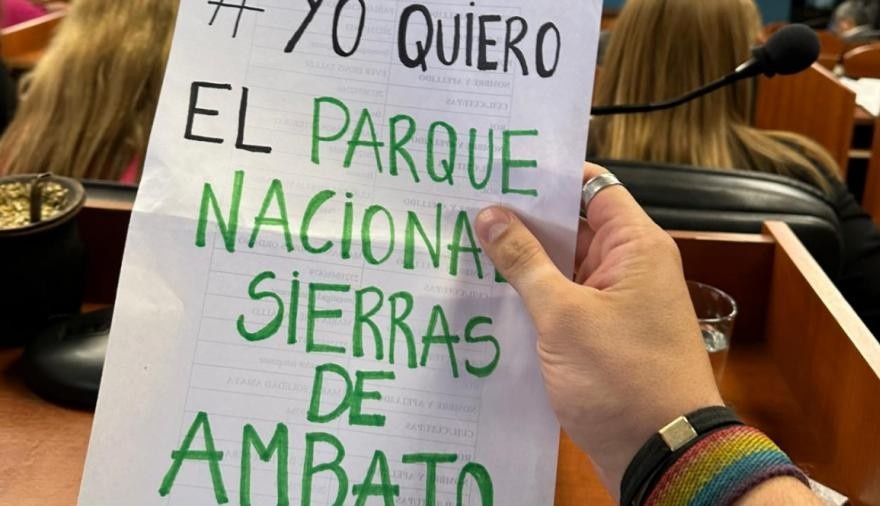 # YO QUIERO
EL PARQUE
NACIONAL
SIERRAS
DE
AMBATO